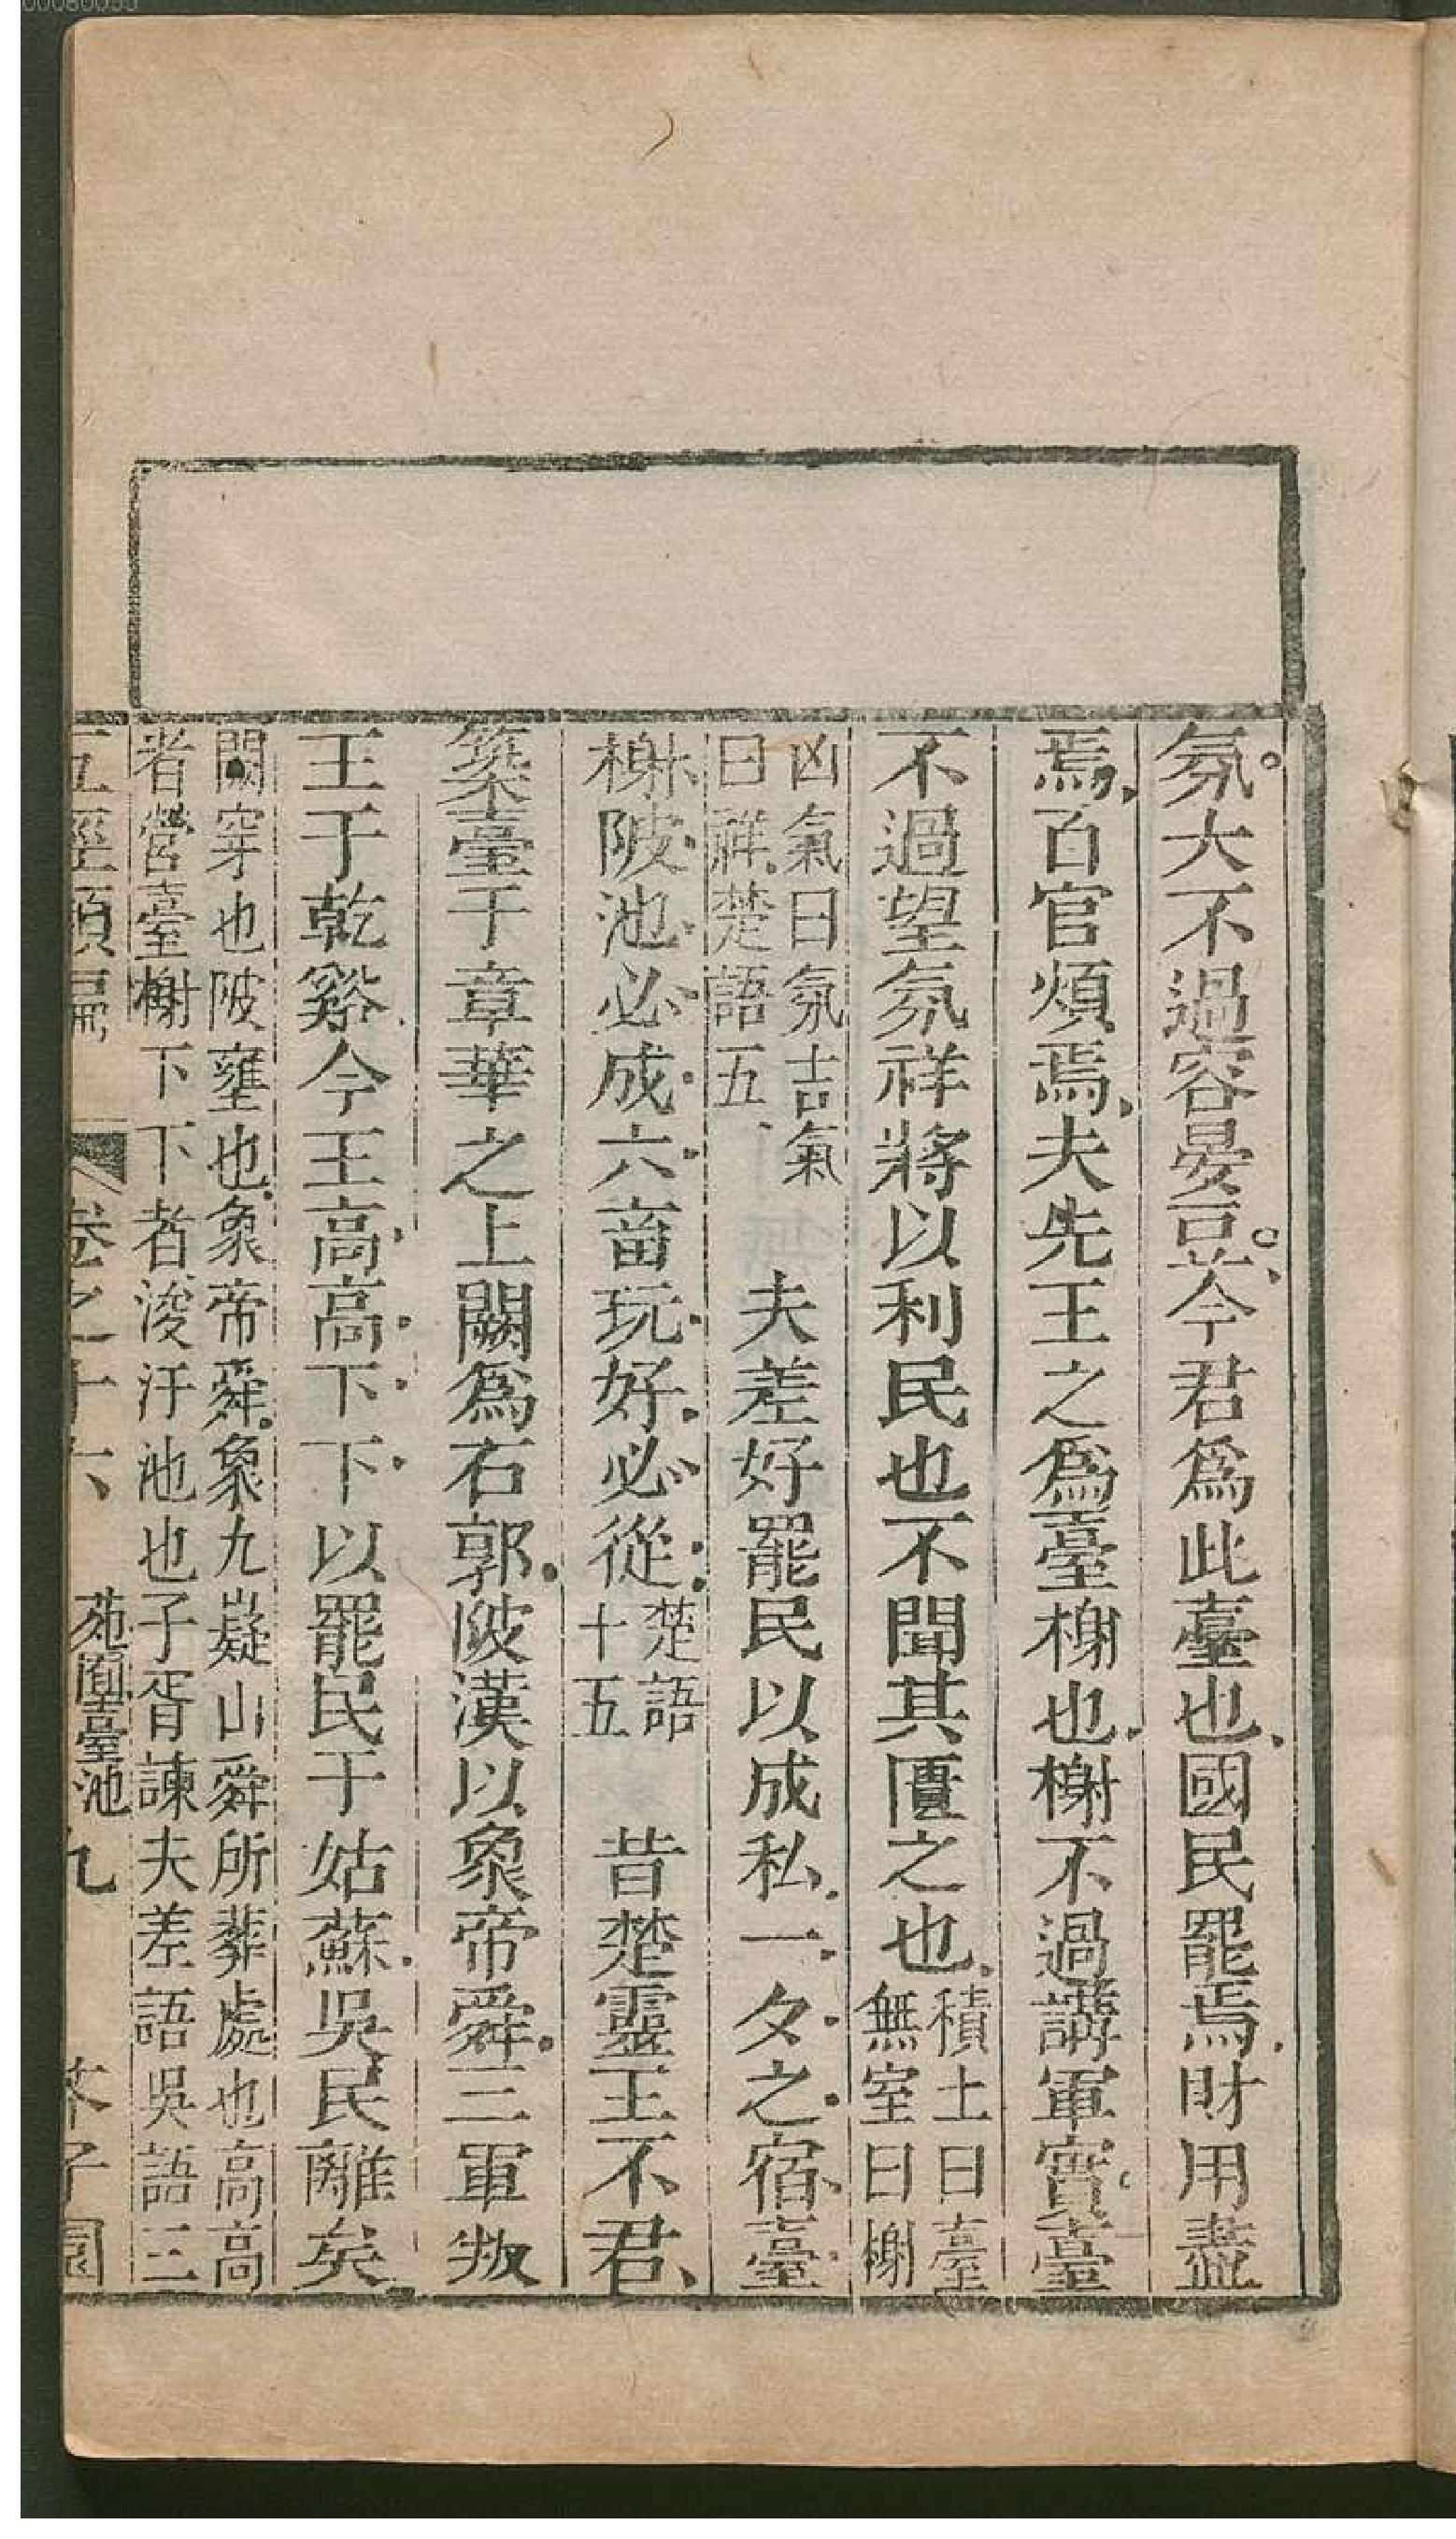 氛大不過容宴豆今君爲此臺也國民罷焉財用盡
焉百官煩焉夫先王之爲臺榭也榭不過講軍實臺
不過望氛祥將以利民也不聞其匱之也積土曰臺
無室曰榭
凶氣曰氛吉氣
曰祥楚語五
夫差好罷民以成私一夕之宿臺
榭陂池必成六畜玩好必從楚語
十五
昔楚靈王不君
築臺于章華之上闕爲石郭陂漢以象帝舜三軍叛
王于乾谿今王高高下下以罷民于姑蘇吳民離矣
闕穿也陂壅也象帝舜象九嶷山舜所葬處也高高
者營臺榭下下者浚汙池也子胥諫夫差語吳語三
五經類編
卷之十六
苑囿臺池
九
芥子園